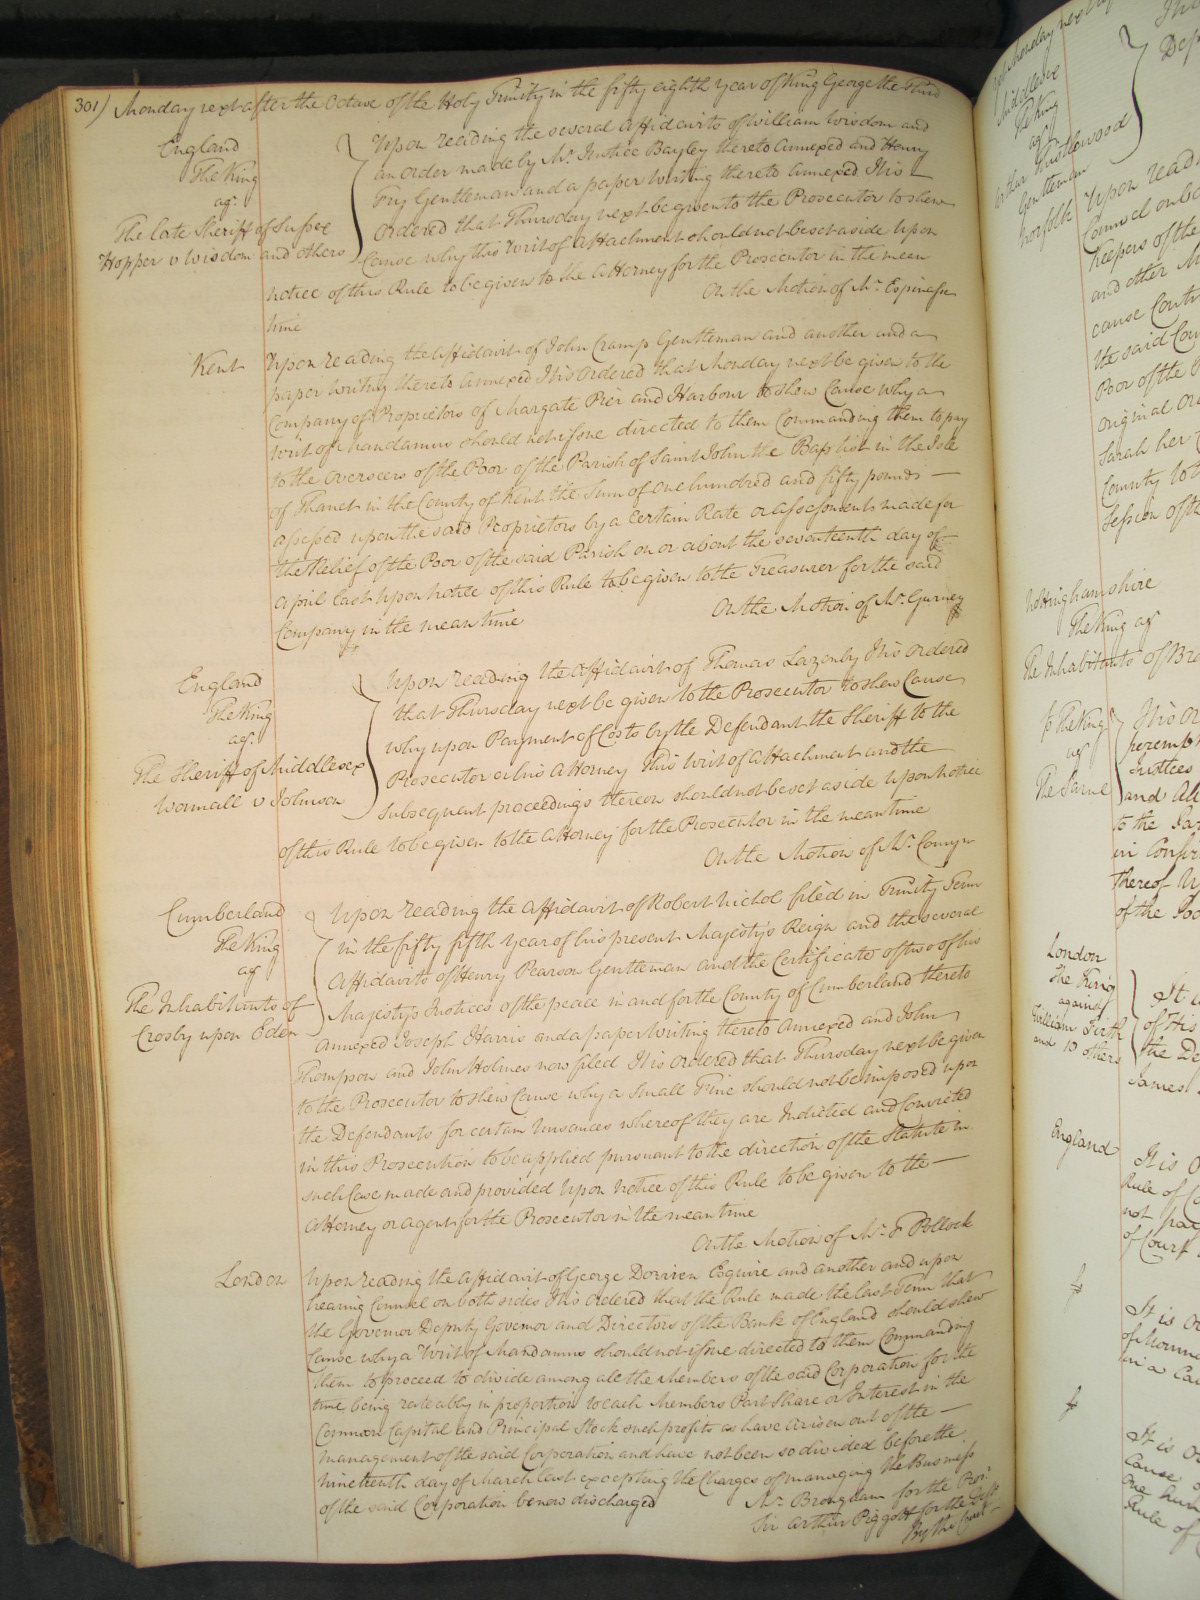 301) Monday next after the Octave of the Holy Trinity in the fifty eighth year of King George the Third
England
The King
agt.
The late Sheriff of Sussex
Hopper v Wisdom and others
Upon reading the several affidavits of William Wisdom and
an order made by Mr. Justice Bayley thereto annexed and Henry
Fry Gentleman and a paper writing thereto annexed It is
Ordered that Thursday next be given to the Prosecutor to shew
Cause why this Writ of Attachment should not be set aside Upon
notice of this Rule to be given to the Attorney for the Prosecutor in the mean
time
On the Motion of Mr. Espinasse
Kent
Upon reading the affidavit of John Cramp Gentleman and another and a
paper writing thereto annexed It is Ordered that Monday next be given to the
Company of Proprietors of Margate Pier and Harbour to shew Cause why a
Writ of Mandamus should not issue directed to them Commanding them to pay
to the Overseers of the Poor of the Parish of Saint John the Baptist in the Isle
of Thanet in the County of Kent the Sum of One hundred and fifty pounds
assessed upon the said Proprietors by a Certain Rate or assessments made for
the Relief of the Poor of the said Parish on or about the seventeenth day of
April last Upon notice of this Rule to be given to the Treasurer for the said
Company in the mean time
On the Motion of Mr. Gurney
England
The King
agt.
The Sheriff of Middlesex
Wormall v Johnson
Upon reading the affidavit of Thomas Lazenby It is Ordered
that Thursday next be given to the Prosecutor to shew Cause
why upon Payment of Costs by the Defendant the Sheriff to the
Prosecutor or his Attorney This Writ of Attachment and the
subsequent proceedings thereon should not be set aside Upon notice
of this Rule to be given to the Attorney for the Prosecutor in the mean time
On the Motion of Mr. Comyn
Cumberland
The King
agt
The Inhabitants of
Crosby upon Eden
Upon reading the affidavit of Robert Nichol filed in Trinity Term
in the fifty fifth Year of his present Majesty's Reign and the several
affidavits of Henry Pearson Gentleman and the Certificate of two of his
Majesty's Justices of the peace in and for the County of Cumberland thereto
annexed Joseph Harris and a paper Writing thereto annexed and John
Thompson and John Holmes now filed It is Ordered that Thursday next be given
to the Prosecutor to shew Cause why a small Fine should not be imposed upon
the Defendants for certain Nuisances whereof they are Indicted and Convicted
in this Prosecution to be applied pursuant to the direction of the Statute in
such Case made and provided Upon notice of this Rule to be given to the
Attorney or agent for the Prosecutor in the mean time
On the Motion of Mr. F Pollock
London
Upon reading the affidavit of George Dorrien Esquire and another and upon
hearing Counsel on both sides It is Ordered that the Rule made the last Term that
the Governor Deputy Governor and Directors of the Bank of England should shew
Cause why a Writ of Mandamus should not issue directed to them Commanding
them to proceed to divide among all the Members of the said Corporation for the
time being rateably in proportion to each Members Part Share or Interest in the
Common Capital and Principal Stock such profits as have arisen out of the
management of the said Corporation and have not been so divided before the
Nineteenth day of March last excepting the Charges of managing the Business
of the said Corporation be now discharged
Mr. Brougham for the Pros.
Sir Arthur Piggott for the Deft.
By the Court
next Monday next
Middlesex
The King
agt
Gentleman
Norfolk
Upon read
Counsel on bo
Keepers of the
and other
cause
the said Cou
Poor of the P
original Or
Sarah her
County to
Session of th
Nottinghamshire
The King agt
The Inhabitants of Br
The King
agt
The Same
It is Or
perempt
Justices
and All
to the
in Confir
thereof
of the Poo
London
The King
against
William Firth
and 10 others
It is
of His
the De
James
England
It is O
Rule of C
not
of Court
It is Or
in a Ca
It is Or
Cause
One hun
Rule of